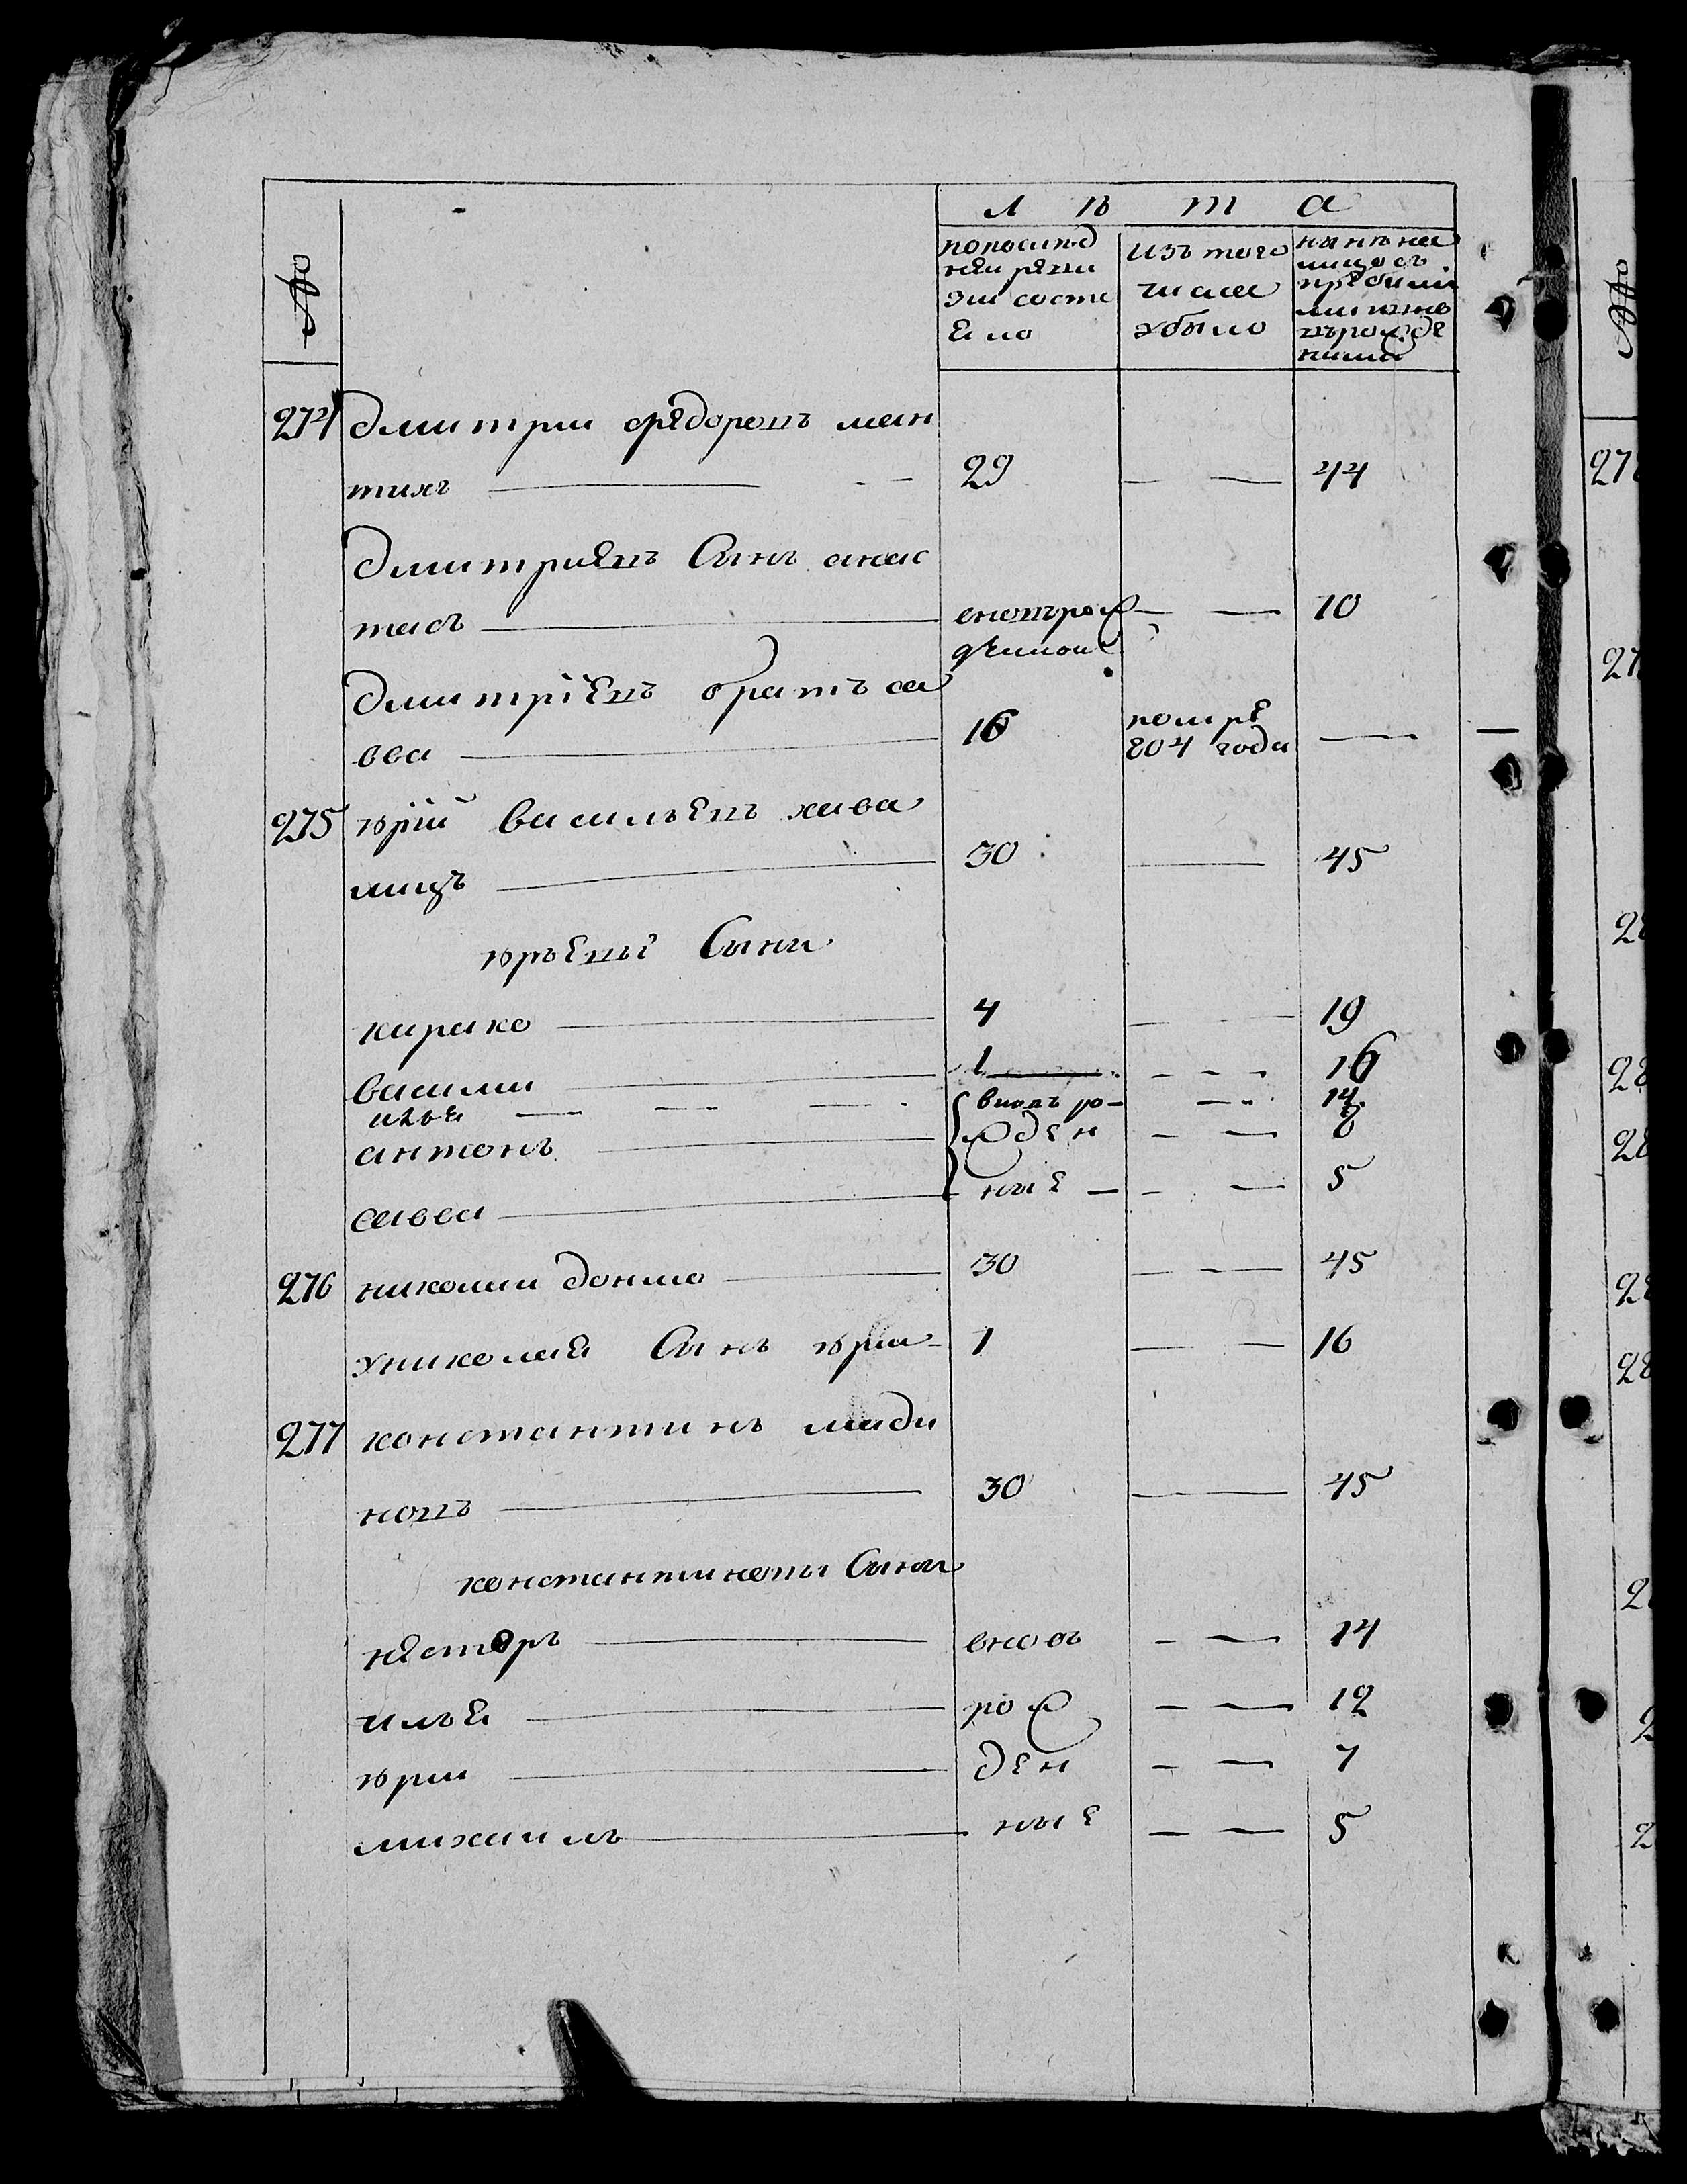 №
Лѣта
попослѣд
неи реви
зии состо
ело
изъ того
числа
убыло
нынѣ на
лицо съ
прибылы
ми и нов
ърожде
ними
274 дмитрии федоровъ ман
тихъ — 29 — — 44
дмитриевъ Сынъ анас
тасъ — вновърож — — 10
денной
дмитріевъ братъ са
вва — 16 помре — 
804 года
275 юрій васильевъ хава
лицъ — 30 — 45
юрьевы Сыни
кирико — 4 — — 19
василии — 1 — — — 16
илья — — — вновь ро — — 14
антонъ — жден — — 8
савва — ные — — — 5
276 николаи донло — 30 — — 45
униколая Сынъ юрии — 1 — — 16
277 константинъ мади
новъ — 30 — 45
константиновы Сыни
несторъ — вновь — — 14
илья — рож — — 12
юрии — ден — — 7
михаилъ — ные — — 5
№